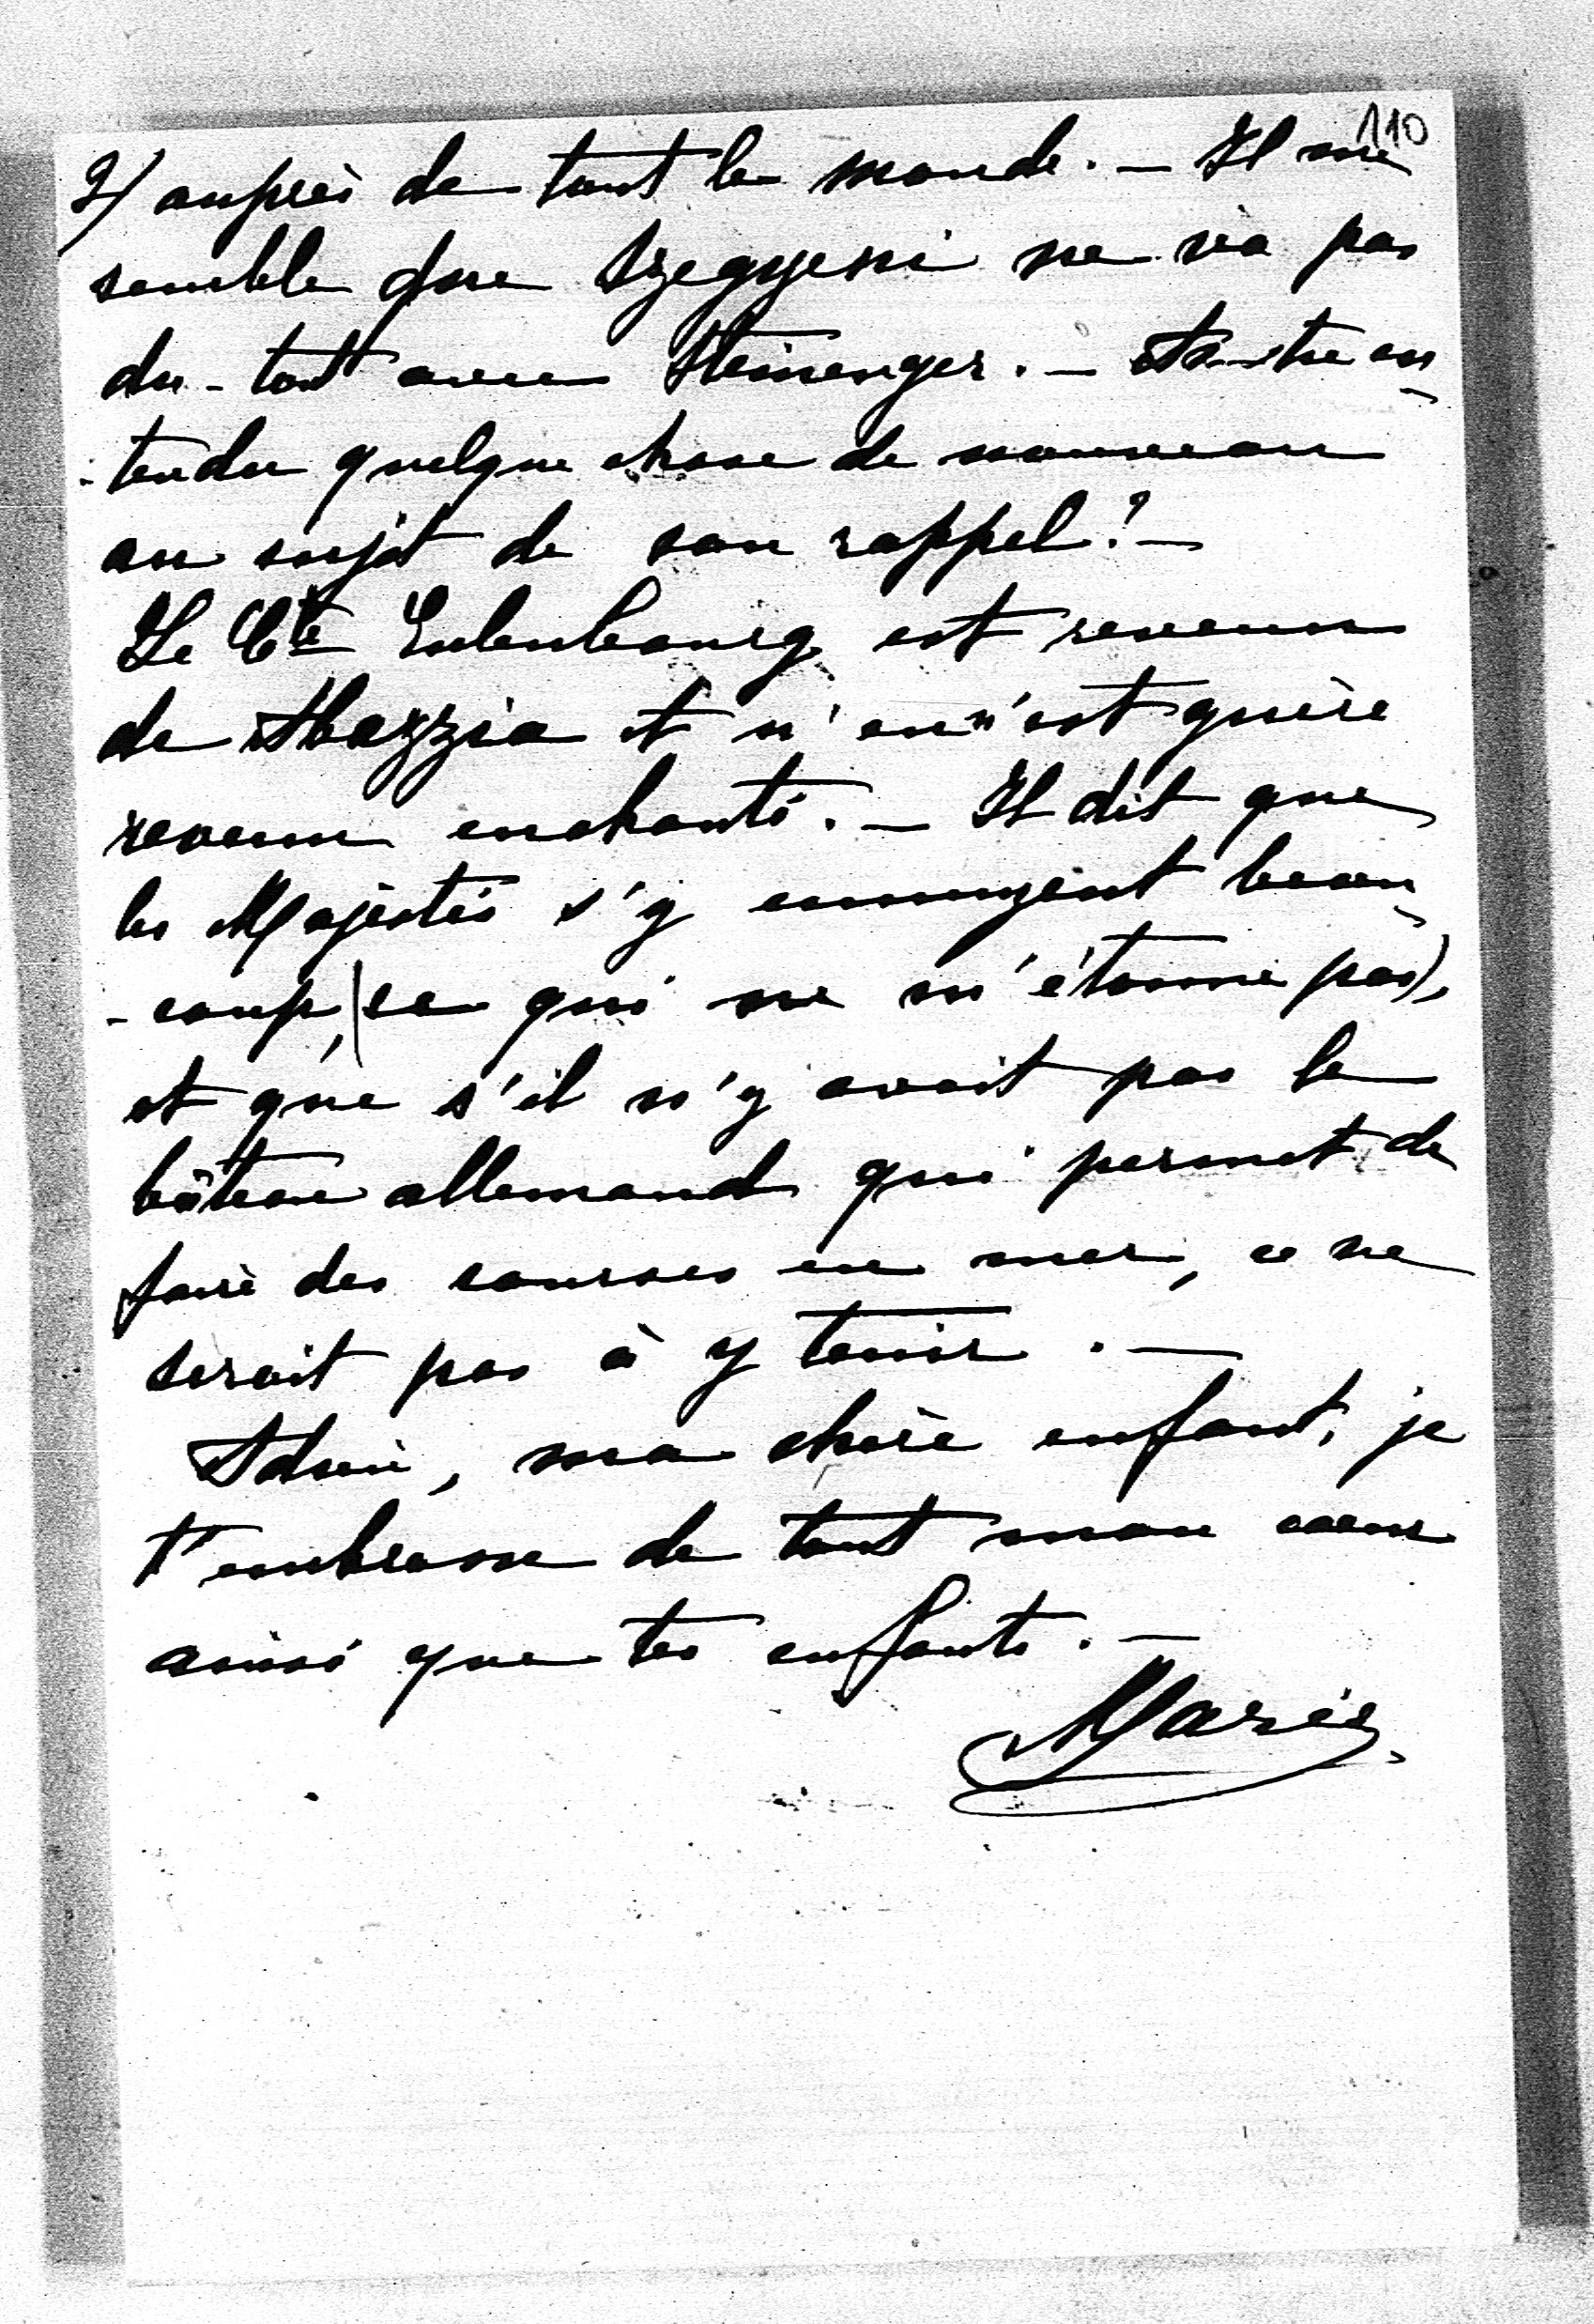 110
2/ auprès de tout le monde. — Il me
semble que Szegyeni ne va pas
du-tout avec Steininger. — As-tu en-
-tendu quelque chose de nouveau
au sujet de son rappel? —
Le Cte Eulenbourg est revenu
de Abazzia et n'en n'est guère
revenu enchanté. — Il dit que
les Majestés s'y ennuyent beau-
-coup, (ce qui ne m'étonne pas),
et que s'il n'y avait pas le
bâteau allemand qui permet de
faire des courses en mer, ce ne
serait pas à y tenir. —
Adieu, ma chère enfant, je
t'embrasse de tout mon coeur
ainsi que tes enfants. —
Marie